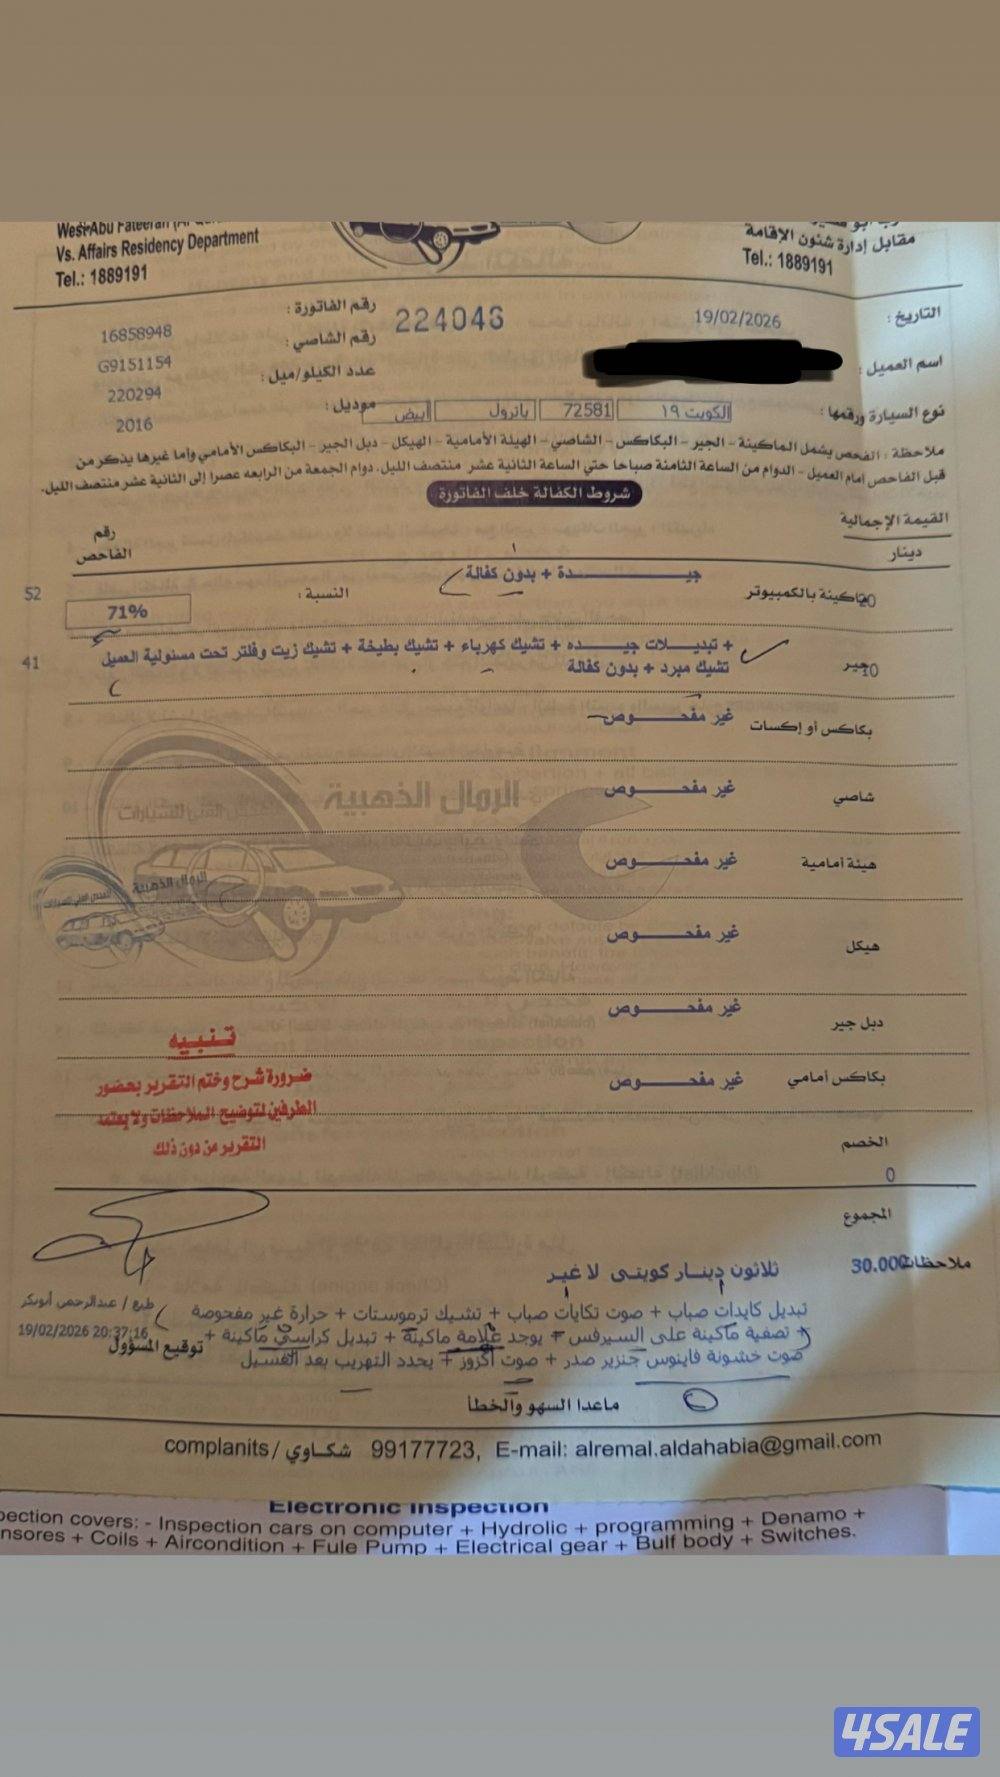 West Abu Fateerah
Vs. Affairs Residency Department
Tel.: 1889191
مقابل إدارة شئون الإقامة
Tel.: 1889191
التاريخ :
19/02/2026
224046
رقم الفاتورة :
16858948
اسم العميل :
رقم الشاصي :
G9151154
عدد الكيلو/ميل :
220294
نوع السيارة ورقمها :
الكويت ١٩
72581
باترول
أبيض
موديل :
2016
ملاحظة : الفحص يشمل الماكينة - الجير - البكاكس - الشاصي - الهيئة الأمامية - الهيكل - دبل الجير - البكاكس الأمامي وأما غيرها يذكر من
قبل الفاحص أمام العميل - الدوام من الساعة الثامنة صباحا حتي الساعة الثانية عشر منتصف الليل. دوام الجمعة من الرابعه عصرا إلى الثانية عشر منتصف الليل.
شروط الكفالة خلف الفاتورة
القيمة الإجمالية
دينار
رقم
الفاحص
20
ماكينة بالكمبيوتر
جيـــــدة + بدون كفالة
النسبة :
71%
52
10
جير
+ تبديـلات جيـــده + تشيك كهرباء + تشيك بطيخة + تشيك زيت وفلتر تحت مسئولية العميل
تشيك مبرد + بدون كفالة
41
بكاكس أو إكسات
غير مفحـــوص
شاصي
غير مفحـــوص
الرمال الذهبية
الفحص الفني للسيارات
هيئة أمامية
غير مفحـــوص
الرمال الذهبية
الفحص الفني للسيارات
هيكل
غير مفحـــوص
دبل جير
غير مفحـــوص
بكاكس أمامي
غير مفحـــوص
تـنـبـيـه
ضرورة شرح وختم التقرير بحضور
الطرفين لتوضيح الملاحظات ولا يعتمد
التقرير من دون ذلك
الخصم
0
المجموع
30.000
ملاحظات
ثلاثون دينـار كويتى لا غيـر
تبديل كايدات صباب + صوت تكايات صباب + تشيك ترموستات + حرارة غير مفحوصة
+ تصفية ماكينة على السيرفس + يوجد علامة ماكينة + تبديل كراسي ماكينة +
صوت خشونة فاينوس جنزير صدر + صوت اكزوز + يحدد التهريب بعد الغسيل
طبع / عبدالرحمن أبوبكر
19/02/2026 20:37:16
توقيع المسؤول
ماعدا السهو والخطأ
complanits / شكاوي 99177723, E-mail: alremal.aldahabia@gmail.com
Electronic Inspection
pection covers: - Inspection cars on computer + Hydrolic + programming + Denamo +
nsores + Coils + Aircondition + Fule Pump + Electrical gear + Bulf body + Switches.
4SALE